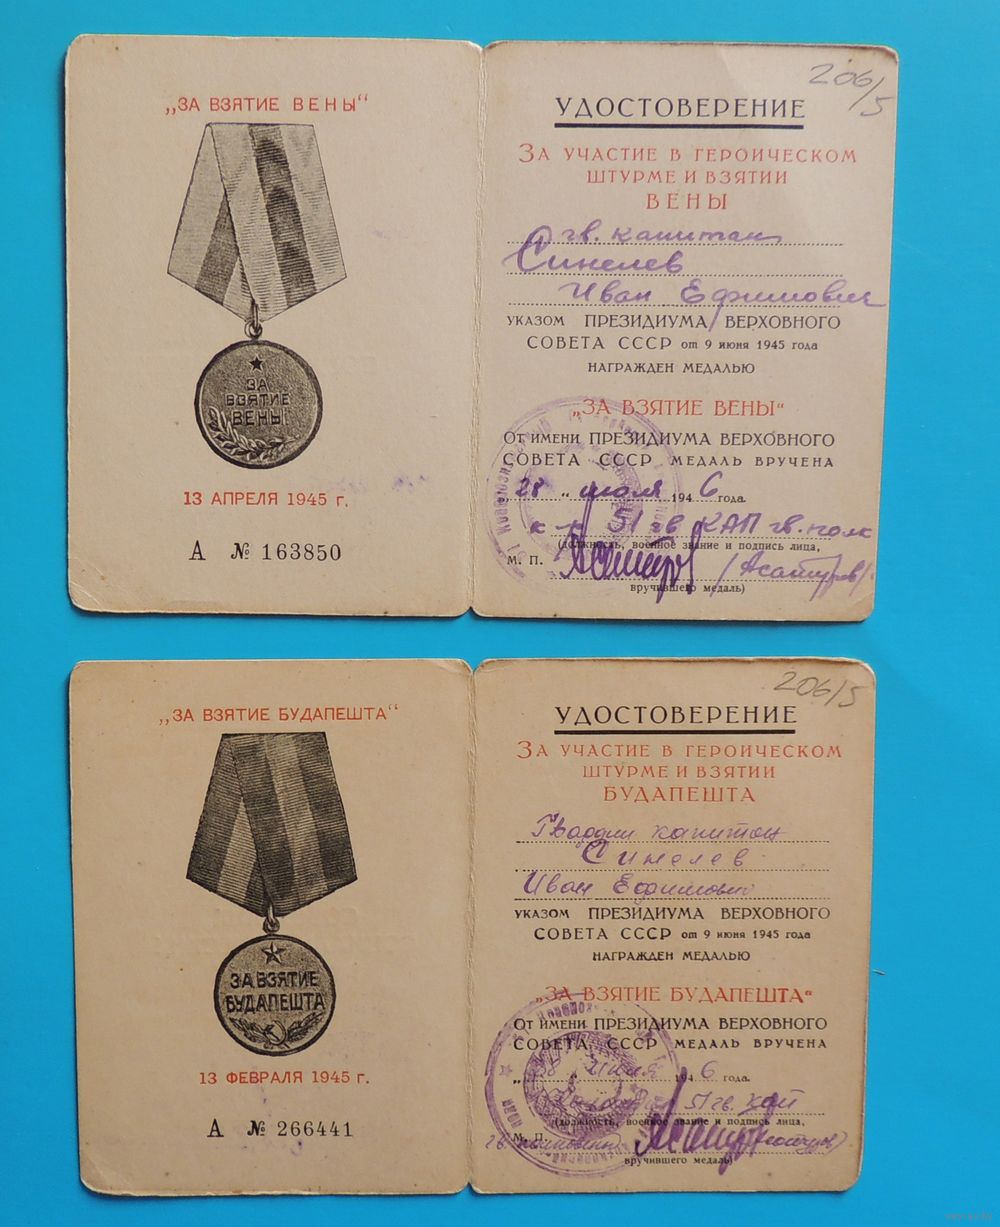 „ЗА ВЗЯТИЕ ВЕНЫ“
ЗА
ВЗЯТИЕ
ВЕНЫ
13 АПРЕЛЯ 1945 г.
А № 163850
206/5
УДОСТОВЕРЕНИЕ
ЗА УЧАСТИЕ В ГЕРОИЧЕСКОМ
ШТУРМЕ И ВЗЯТИИ
ВЕНЫ
гв. капитан
Синелев
Иван Ефимович
УКАЗОМ ПРЕЗИДИУМА ВЕРХОВНОГО
СОВЕТА СССР от 9 июня 1945 года
НАГРАЖДЕН МЕДАЛЬЮ
„ЗА ВЗЯТИЕ ВЕНЫ“
ОТ ИМЕНИ ПРЕЗИДИУМА ВЕРХОВНОГО
СОВЕТА СССР МЕДАЛЬ ВРУЧЕНА
„28 “ июля 1946 года.
к-р 51 гв КАП гв. полк
(должность, военное звание и подпись лица,
М. П. (Асатуров)
вручившего медаль)
„ЗА ВЗЯТИЕ БУДАПЕШТА“
ЗА ВЗЯТИЕ
БУДАПЕШТА
13 ФЕВРАЛЯ 1945 г.
А № 266441
206/5
УДОСТОВЕРЕНИЕ
ЗА УЧАСТИЕ В ГЕРОИЧЕСКОМ
ШТУРМЕ И ВЗЯТИИ
БУДАПЕШТА
Гвардии капитан
Синелев
Иван Ефимович
УКАЗОМ ПРЕЗИДИУМА ВЕРХОВНОГО
СОВЕТА СССР от 9 июня 1945 года
НАГРАЖДЕН МЕДАЛЬЮ
„ЗА ВЗЯТИЕ БУДАПЕШТА“
ОТ ИМЕНИ ПРЕЗИДИУМА ВЕРХОВНОГО
СОВЕТА СССР МЕДАЛЬ ВРУЧЕНА
„28 “ 1946 года.
51 гв. КАП
(должность, военное звание и подпись лица,
М. П. (Асатуров)
вручившего медаль)